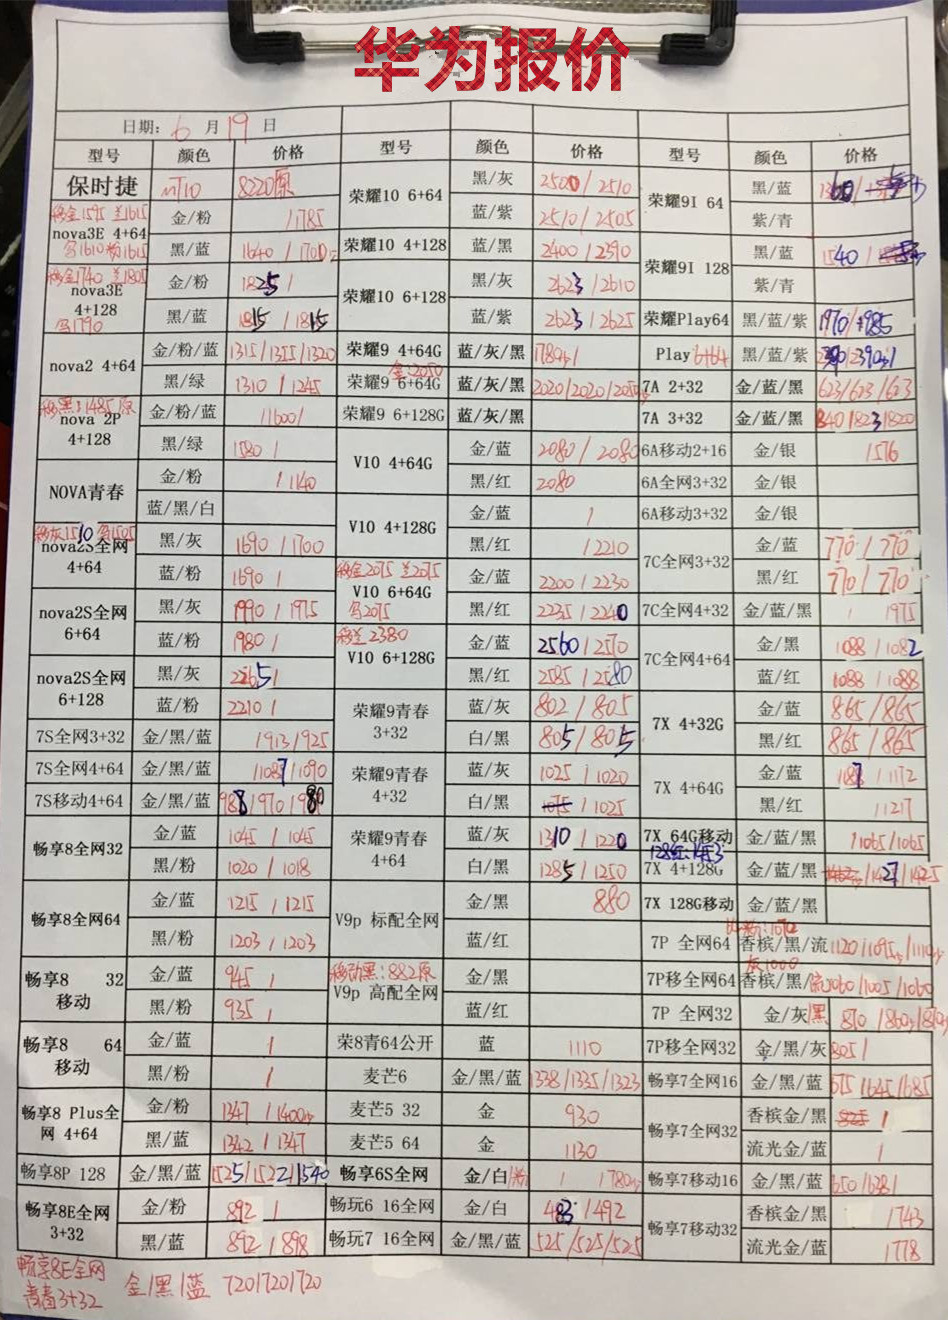 华为报价
日期: 6 月 19 日
型号 颜色 价格 型号 颜色 价格 型号 颜色 价格
保时捷 MT10 8220原
荣耀10 6+64 黑/灰 2500/2510
蓝/紫 2510/2505
荣耀9I 64 黑/蓝
紫/青
移金1595 兰1615
nova3E 4+64
马1610粉1615
金/粉 /1785
黑/蓝 1640/1700
荣耀10 4+128 蓝/黑 2400/2590
荣耀9I 128 黑/蓝 1540/
紫/青
移金1740 兰1805
nova3E
4+128
马1790
金/粉 1825/
黑/蓝 1815/1815
荣耀10 6+128 黑/灰 2623/2610
蓝/紫 2623/2625
荣耀Play64 黑/蓝/紫 1970/1985
nova2 4+64 金/粉/蓝 1315/1355/1320
黑/绿 1310/1245
荣耀9 4+64G 蓝/灰/黑
Play 6+64 黑/蓝/紫
金:2050
荣耀9 6+64G 蓝/灰/黑 2020/2020/2050
7A 2+32 金/蓝/黑 623/623/623
移黑:1485原
nova 2P
4+128
金/粉/蓝 /1600/
黑/绿 1580/
荣耀9 6+128G 蓝/灰/黑
7A 3+32 金/蓝/黑 840/823/820
V10 4+64G 金/蓝 2080/2080
黑/红 2080
6A移动2+16 金/银 1576
NOVA青春 金/粉 /1140
蓝/黑/白
6A全网3+32 金/银
V10 4+128G 金/蓝 /
黑/红 /2210
6A移动3+32 金/银
移灰1510 马1505
nova2S全网
4+64
黑/灰 1690/1700
蓝/粉 1690/
7C全网3+32 金/蓝 770/770
黑/红 770/770
移金2075 兰2075
V10 6+64G
马2075
金/蓝 2200/2230
黑/红 2235/2240
nova2S全网
6+64
黑/灰 1990/1975
蓝/粉 1980/
7C全网4+32 金/蓝/黑 / 1975
移兰2380
V10 6+128G
金/蓝 2560/2570
黑/红 2585/2580
7C全网4+64 金/黑 1088/1082
蓝/红 1088/1088
nova2S全网
6+128
黑/灰 2265/
蓝/粉 2210/
荣耀9青春
3+32
蓝/灰 802/805
白/黑 805/805
7X 4+32G 金/蓝 865/865
黑/红 865/865
7S全网3+32 金/黑/蓝 /913/925
7S全网4+64 金/黑/蓝 /1087/1090
7S移动4+64 金/黑/蓝 988/970/980
荣耀9青春
4+32
蓝/灰 1025/1020
白/黑 1075/1025
7X 4+64G 金/蓝 1087/1172
黑/红 /1217
畅享8全网32 金/蓝 1045/1045
黑/粉 1020/1018
荣耀9青春
4+64
蓝/灰 1310/1220
白/黑 1285/1250
7X 64G移动 金/蓝/黑 /1065/1065
128红:1453
7X 4+128G 金/蓝/黑 /1427/1425
畅享8全网64 金/蓝 1215/1215
黑/粉 1203/1203
V9p 标配全网 金/黑 880
蓝/红
7X 128G移动 金/蓝/黑
7P 全网64 香槟/黑/流
灰1000
7P移全网64 香槟/黑/流 1060/1005/1060
畅享8 32
移动
金/蓝 945/
黑/粉 935/
移动黑:882原
V9p 高配全网
金/黑
蓝/红
7P 全网32 金/灰/黑
畅享8 64
移动
金/蓝 /
黑/粉 /
荣8青64公开 蓝 1110
7P移全网32 金/黑/灰 805/
麦芒6 金/黑/蓝 1338/1335/1323
畅享7全网16 金/黑/蓝 675/645/685
畅享8 Plus全
网 4+64
金/粉
黑/蓝 1342/1347
麦芒5 32 金 930
麦芒5 64 金 1130
畅享7全网32 香槟金/黑 825/
流光金/蓝 /
畅享8P 128 金/黑/蓝 1525/1522/1540
畅享6S全网 金/白/粉
畅享7移动16 金/黑/蓝 650/638/
畅享8E全网
3+32
金/粉 892/
黑/蓝 892/898
畅玩6 16全网 金/白 483/492
畅玩7 16全网 金/黑/蓝 525/525/525
畅享7移动32 香槟金/黑 /743
流光金/蓝 /778
畅享8E全网
青春3+32
金/黑/蓝 720/720/720